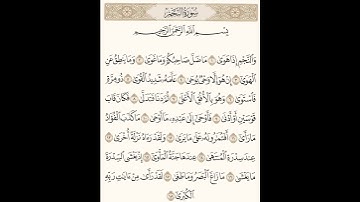 سُورَةُ النَّجْمِ
بِسْمِ اللَّهِ الرَّحْمَٰنِ الرَّحِيمِ
وَالنَّجْمِ إِذَا هَوَىٰ ۝١ مَا ضَلَّ صَاحِبُكُمْ وَمَا غَوَىٰ ۝٢ وَمَا يَنطِقُ عَنِ
الْهَوَىٰ ۝٣ إِنْ هُوَ إِلَّا وَحْيٌ يُوحَىٰ ۝٤ عَلَّمَهُ شَدِيدُ الْقُوَىٰ ۝٥ ذُو مِرَّةٍ
فَاسْتَوَىٰ ۝٦ وَهُوَ بِالْأُفُقِ الْأَعْلَىٰ ۝٧ ثُمَّ دَنَا فَتَدَلَّىٰ ۝٨ فَكَانَ قَابَ
قَوْسَيْنِ أَوْ أَدْنَىٰ ۝٩ فَأَوْحَىٰ إِلَىٰ عَبْدِهِ مَا أَوْحَىٰ ۝١٠ مَا كَذَبَ الْفُؤَادُ
مَا رَأَىٰ ۝١١ أَفَتُمَارُونَهُ عَلَىٰ مَا يَرَىٰ ۝١٢ وَلَقَدْ رَآهُ نَزْلَةً أُخْرَىٰ ۝١٣
عِندَ سِدْرَةِ الْمُنتَهَىٰ ۝١٤ عِندَهَا جَنَّةُ الْمَأْوَىٰ ۝١٥ إِذْ يَغْشَى السِّدْرَةَ
مَا يَغْشَىٰ ۝١٦ مَا زَاغَ الْبَصَرُ وَمَا طَغَىٰ ۝١٧ لَقَدْ رَأَىٰ مِنْ آيَاتِ رَبِّهِ
الْكُبْرَىٰ ۝١٨